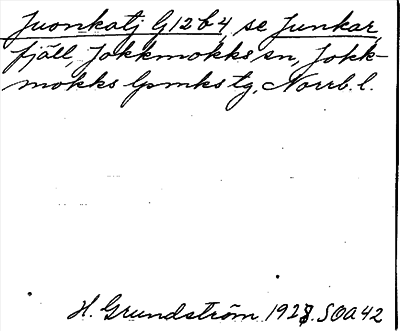 Juonkatj G12b4, se Junkar,
fjäll, Jokkmokks sn, Jokk-
mokks lpmks tg, Norrb. l.
H. Grundström 1928. SOA42